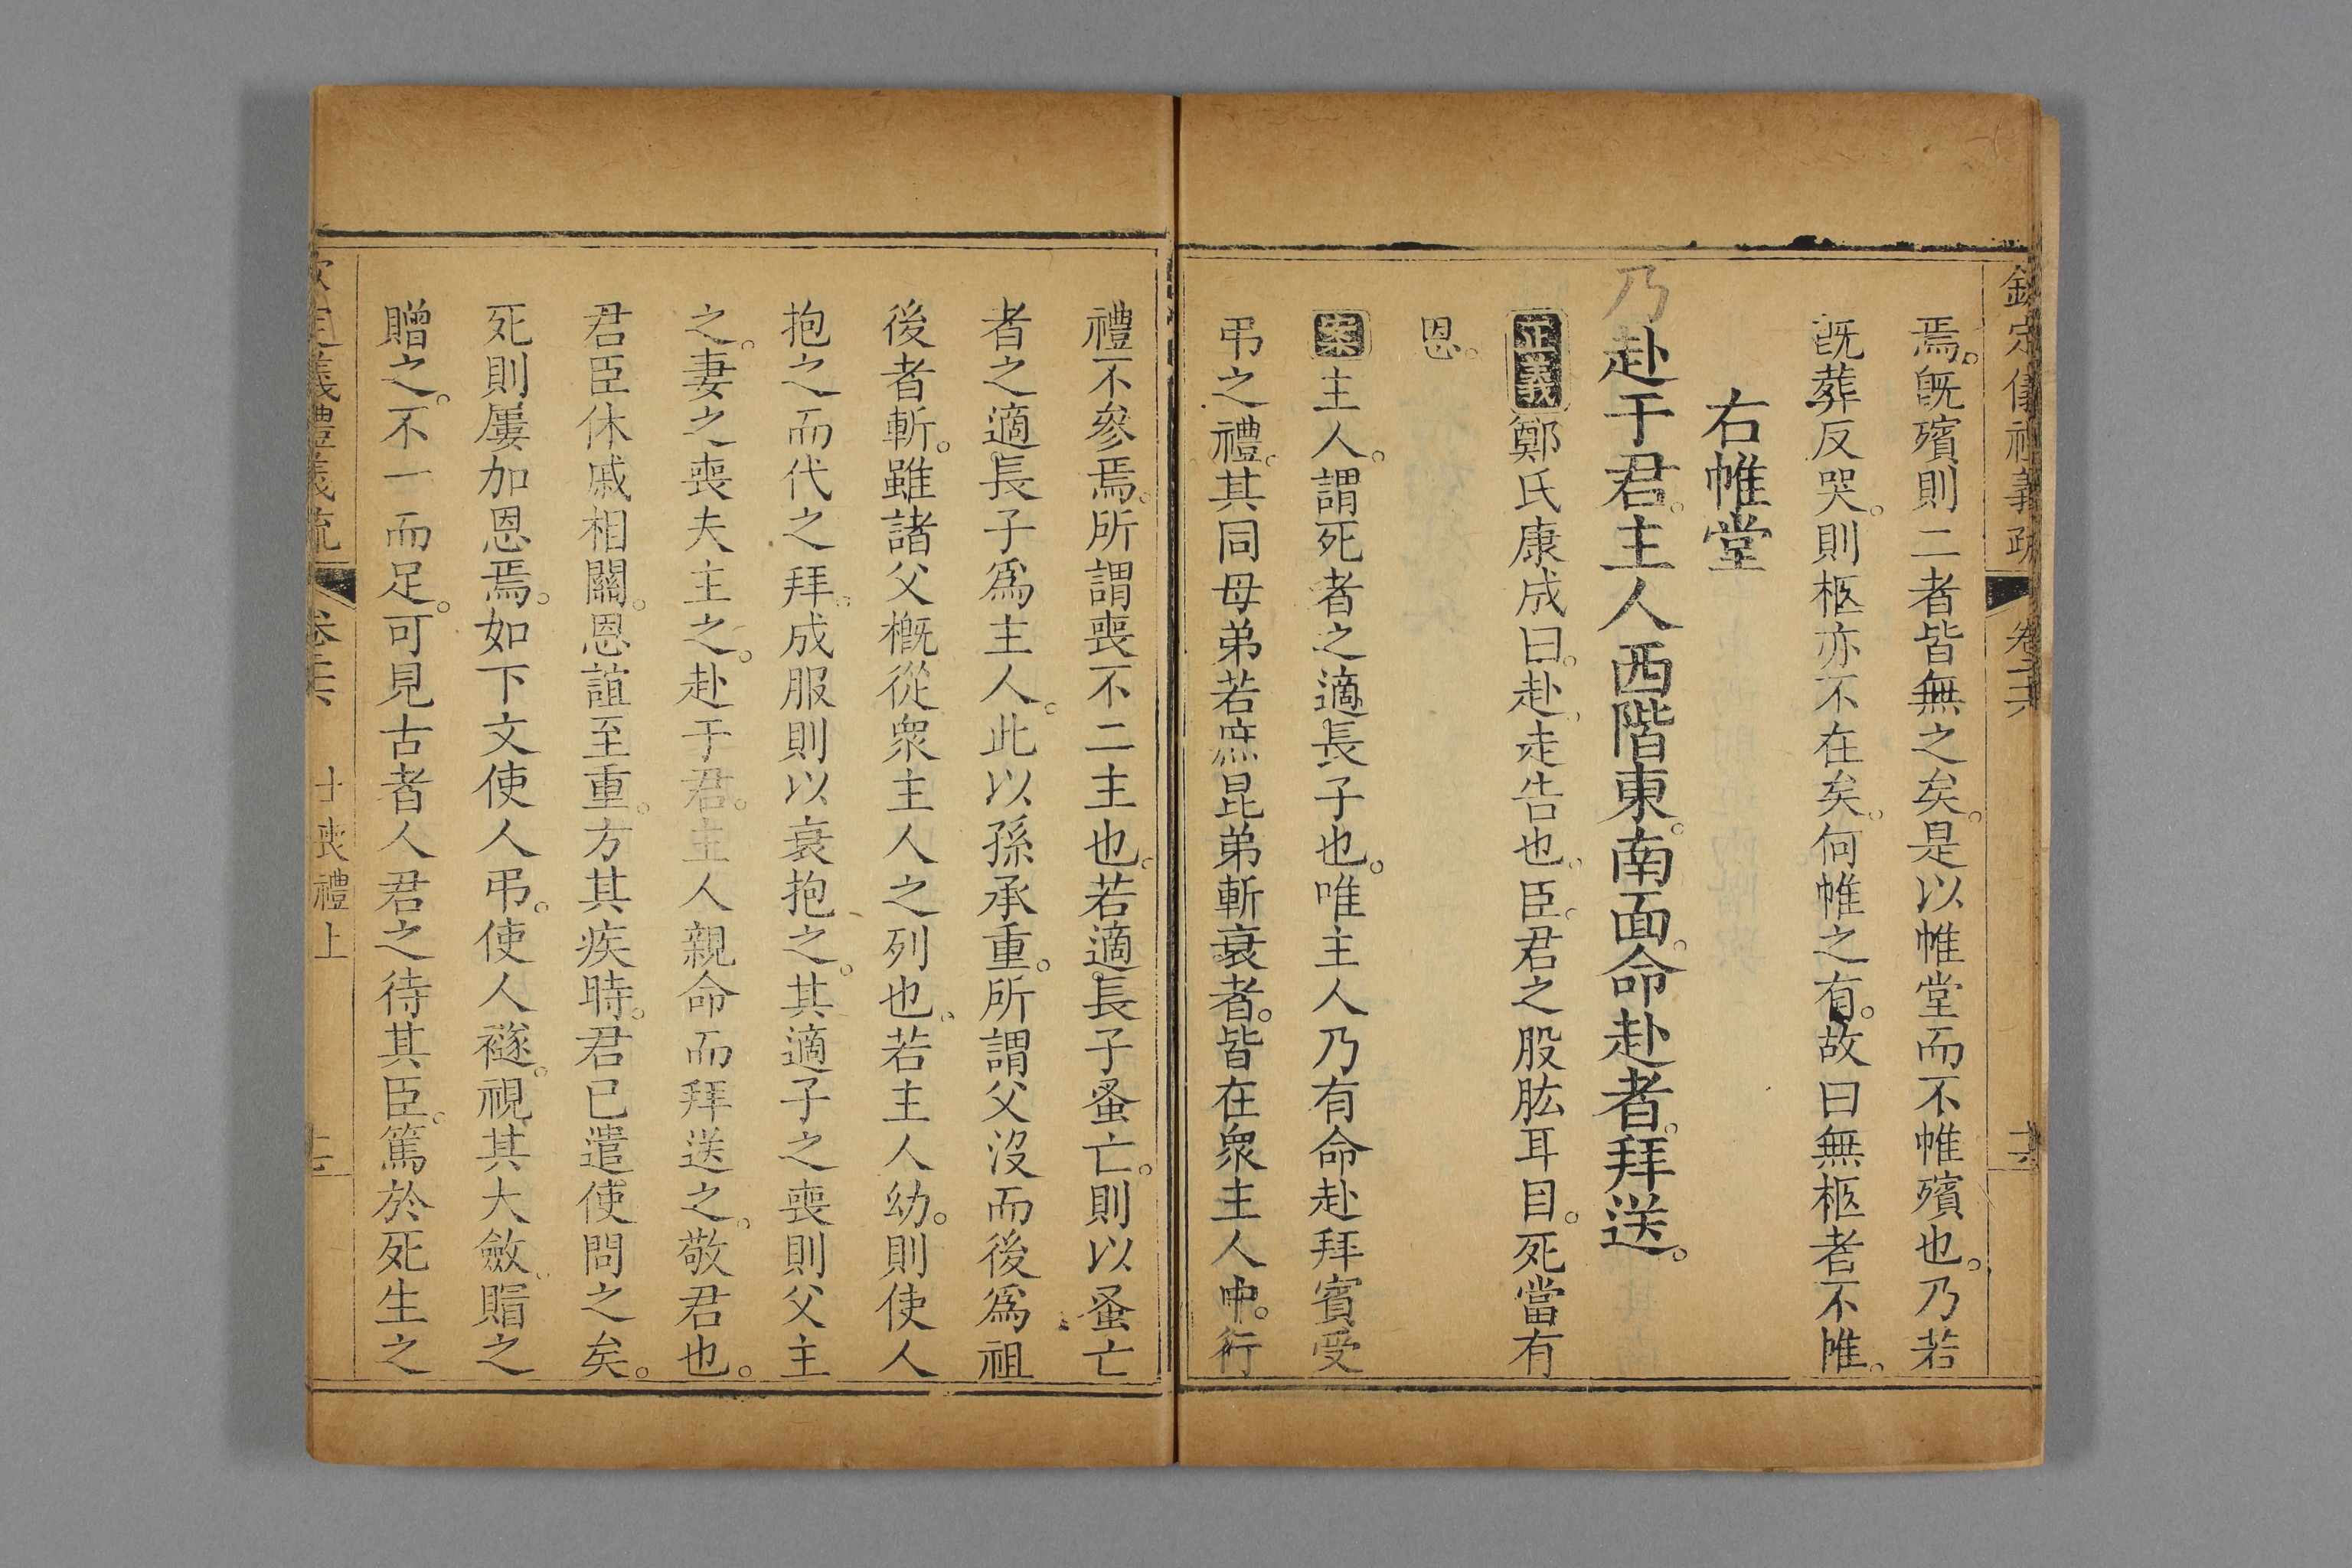 欽定儀禮義疏 卷二十六
焉。旣殯則二者皆無之矣。是以帷堂而不帷殯也。乃若
旣葬反哭。則柩亦不在矣。何帷之有。故曰無柩者不帷。
右帷堂
乃赴于君。主人西階東。南面。命赴者。拜送。
正義鄭氏康成曰。赴、走告也。臣、君之股肱耳目。死當有
恩。
案主人。謂死者之適長子也。唯主人乃有命赴拜賓受
弔之禮。其同母弟若庶昆弟斬衰者。皆在衆主人中。行
禮不參焉。所謂喪不二主也。若適長子蚤亡。則以蚤亡
者之適長子爲主人。此以孫承重。所謂父沒而後爲祖
後者斬。雖諸父槪從衆主人之列也。若主人幼。則使人
抱之而代之拜。成服則以衰抱之。其適子之喪則父主
之。妻之喪夫主之。赴于君。主人親命而拜送之。敬君也。
君臣休戚相關。恩誼至重。方其疾時。君已遣使問之矣。
死則屢加恩焉。如下文使人弔。使人襚。視其大斂。賵之
贈之。不一而足。可見古者人君之待其臣。篤於死生之
欽定儀禮義疏 卷二十六 士喪禮上